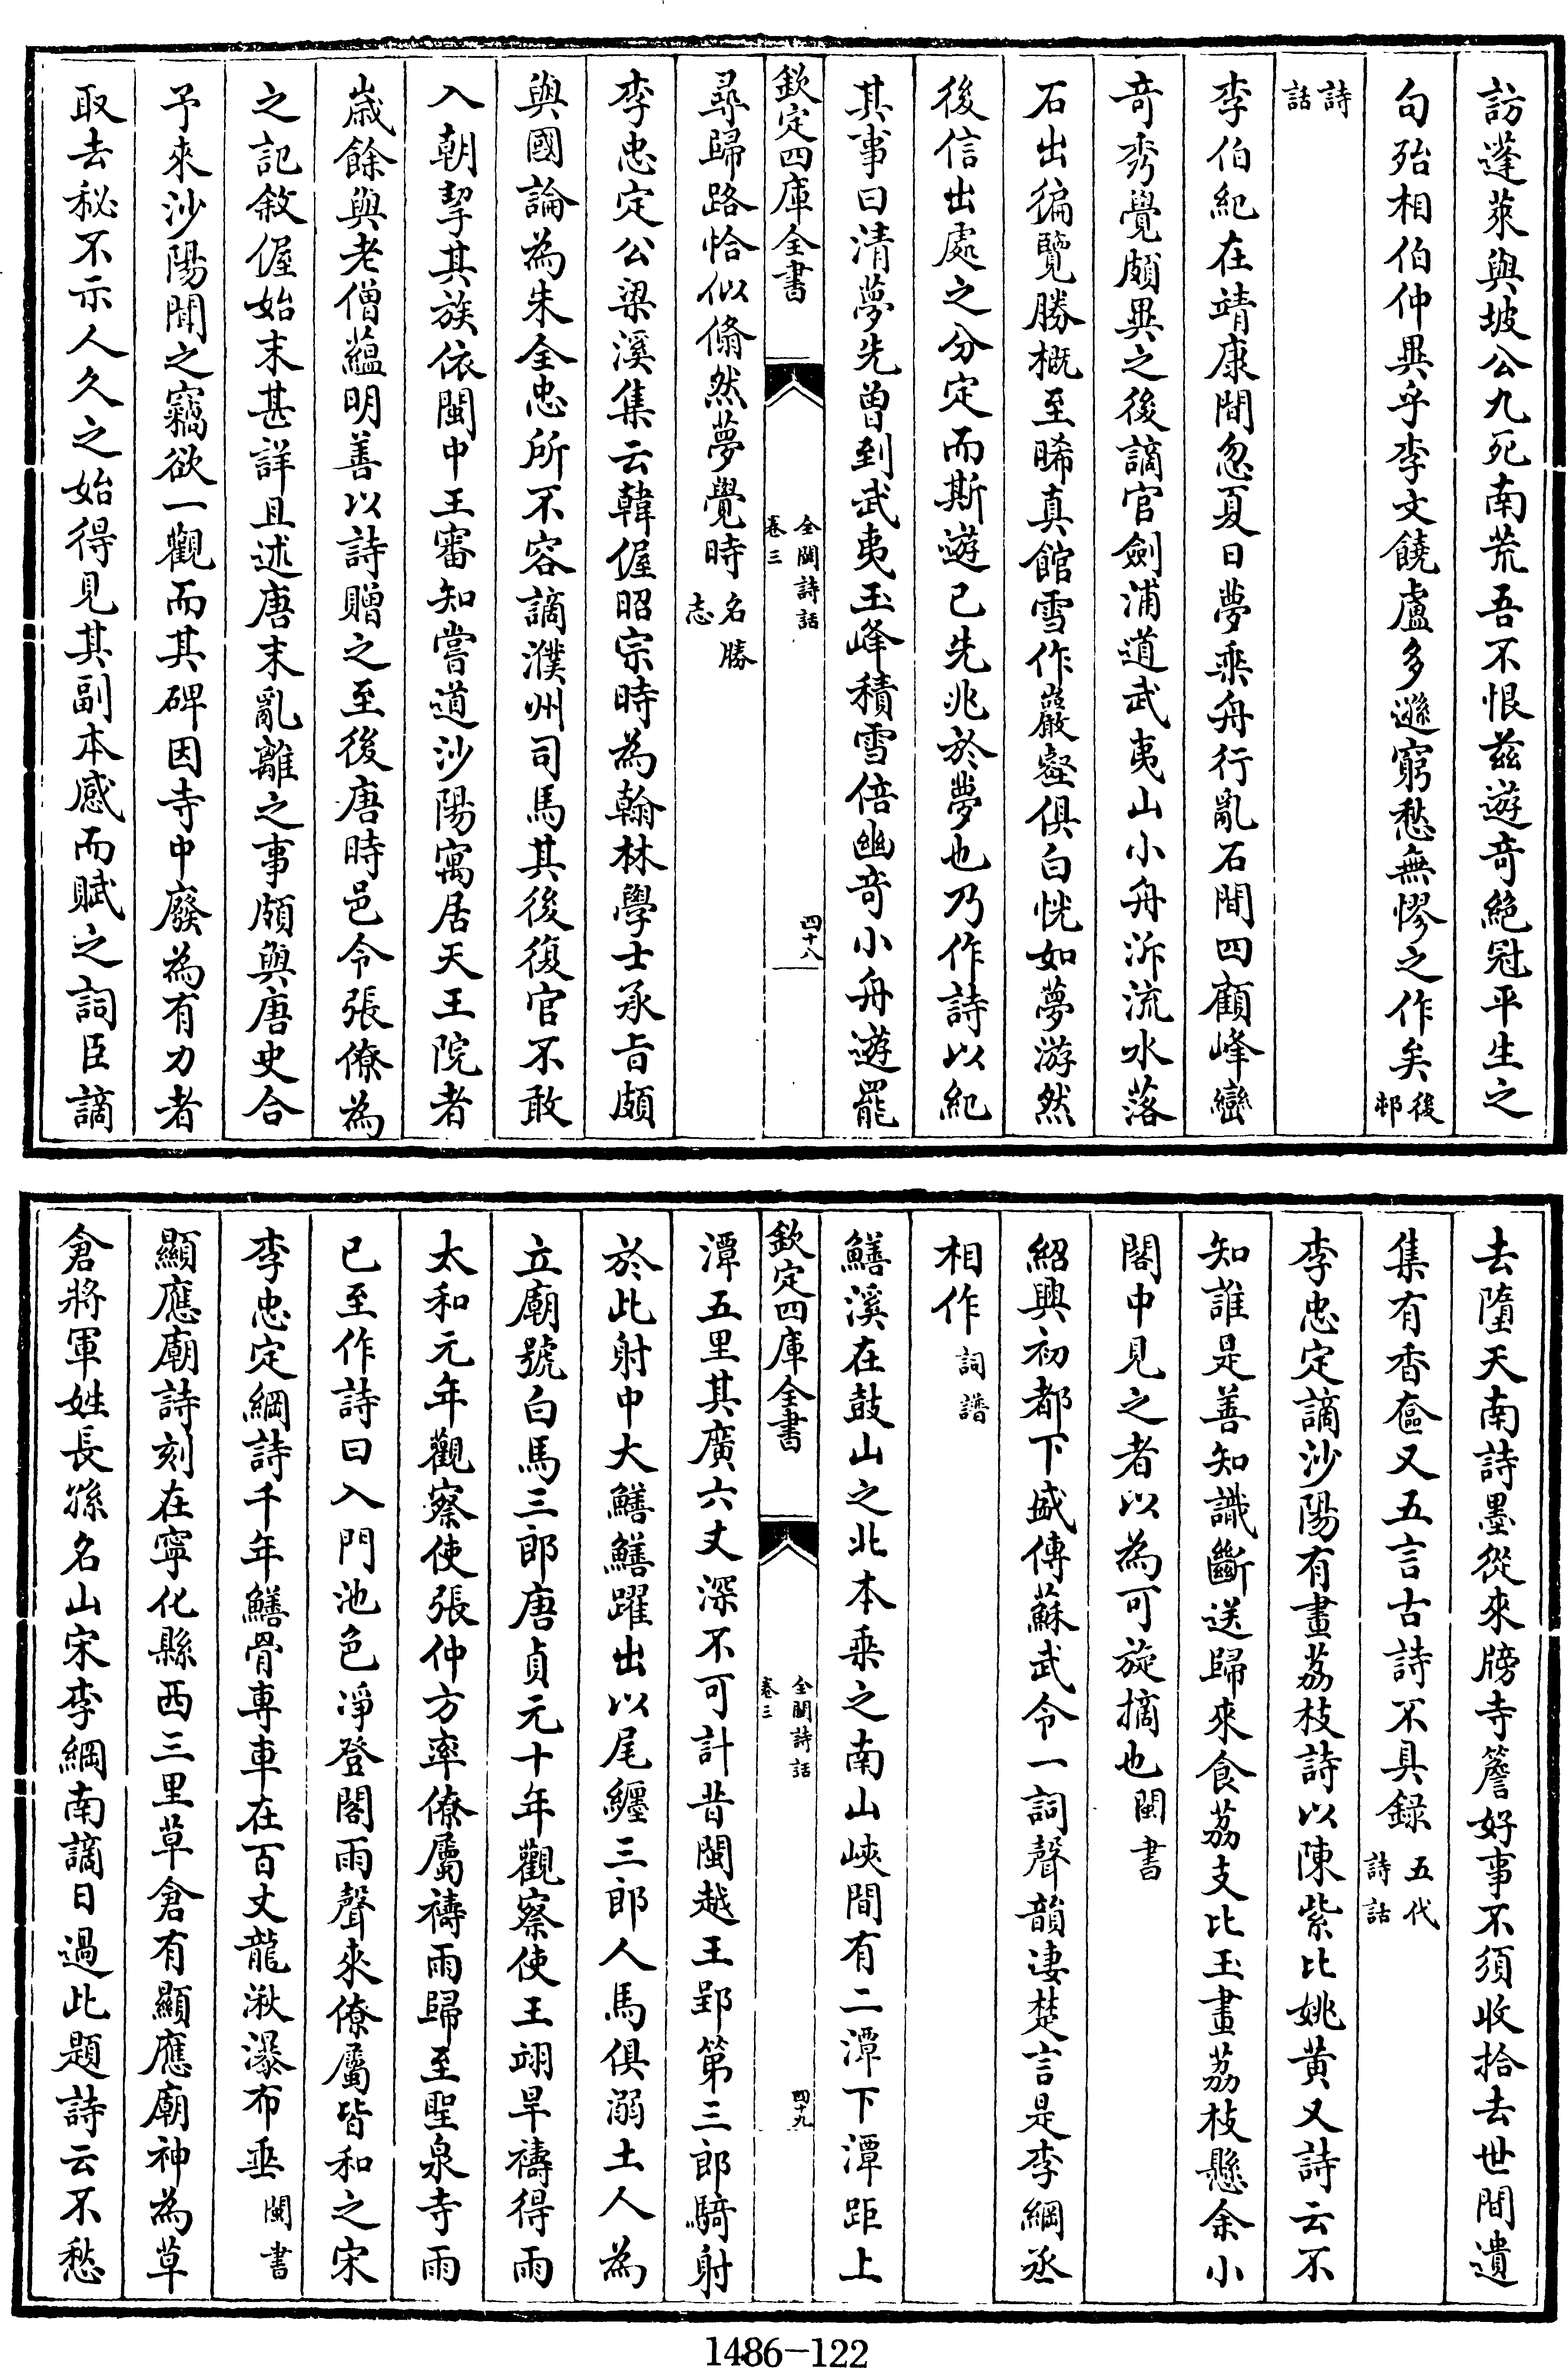 訪蓬萊與坡公九死南荒吾不恨茲遊奇絶冠平生之
句殆相伯仲異乎李文饒盧多遜窮愁無憀之作矣後邨
詩話
李伯紀在靖康間忽夏日夢乘舟行亂石間四顧峰巒
奇秀覺頗異之後謫官劍浦道武夷山小舟泝流水落
石出徧覽勝概至晞真館雪作巖壑俱白恍如夢游然
後信出處之分定而斯遊已先兆於夢也乃作詩以紀
其事曰清夢先曾到武夷玉峰積雪倍幽奇小舟遊罷
欽定四庫全書 全閩詩話卷三 四十八
尋歸路恰似翛然夢覺時名勝志
李忠定公梁溪集云韓偓昭宗時為翰林學士承旨頗
與國論為朱全忠所不容謫濮州司馬其後復官不敢
入朝挈其族依閩中王審知嘗道沙陽寓居天王院者
歲餘與老僧蘊明善以詩贈之至後唐時邑令張僚為
之記敘偓始末甚詳且述唐末亂離之事頗與唐史合
予來沙陽聞之竊欲一觀而其碑因寺中廢為有力者
取去秘不示人久之始得見其副本感而賦之詞臣謫
去墮天南詩墨從來牓寺簷好事不須收拾去世間遺
集有香奩又五言古詩不具録五代詩話
李忠定謫沙陽有畫荔枝詩以陳紫比姚黃又詩云不
知誰是善知識斷送歸來食荔支比玉畫荔枝懸余小
閣中見之者以為可旋摘也閩書
紹興初都下盛傳蘇武令一詞聲韻淒楚言是李綱丞
相作詞譜
鱔溪在鼓山之北本乘之南山峽間有二潭下潭距上
欽定四庫全書 全閩詩話卷三 四十九
潭五里其廣六丈深不可計昔閩越王郢第三郎騎射
於此射中大鱔鱔躍出以尾纏三郎人馬俱溺土人為
立廟號白馬三郎唐貞元十年觀察使王翃旱禱得雨
太和元年觀察使張仲方率僚屬禱雨歸至聖泉寺雨
已至作詩曰入門池色凈登閣雨聲來僚屬皆和之宋
李忠定綱詩千年鱔骨專車在百丈龍湫瀑布垂閩書
顯應廟詩刻在寧化縣西三里草倉有顯應廟神為草
倉將軍姓長孫名山宋李綱南謫日過此題詩云不愁
1486-122